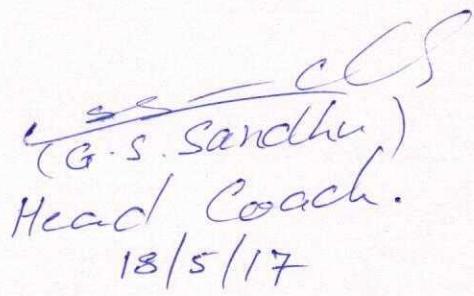 (G.S. Sandhu)
Head Coach.
18/5/17